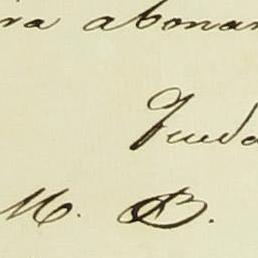 ra abonar
Funda
M. B.